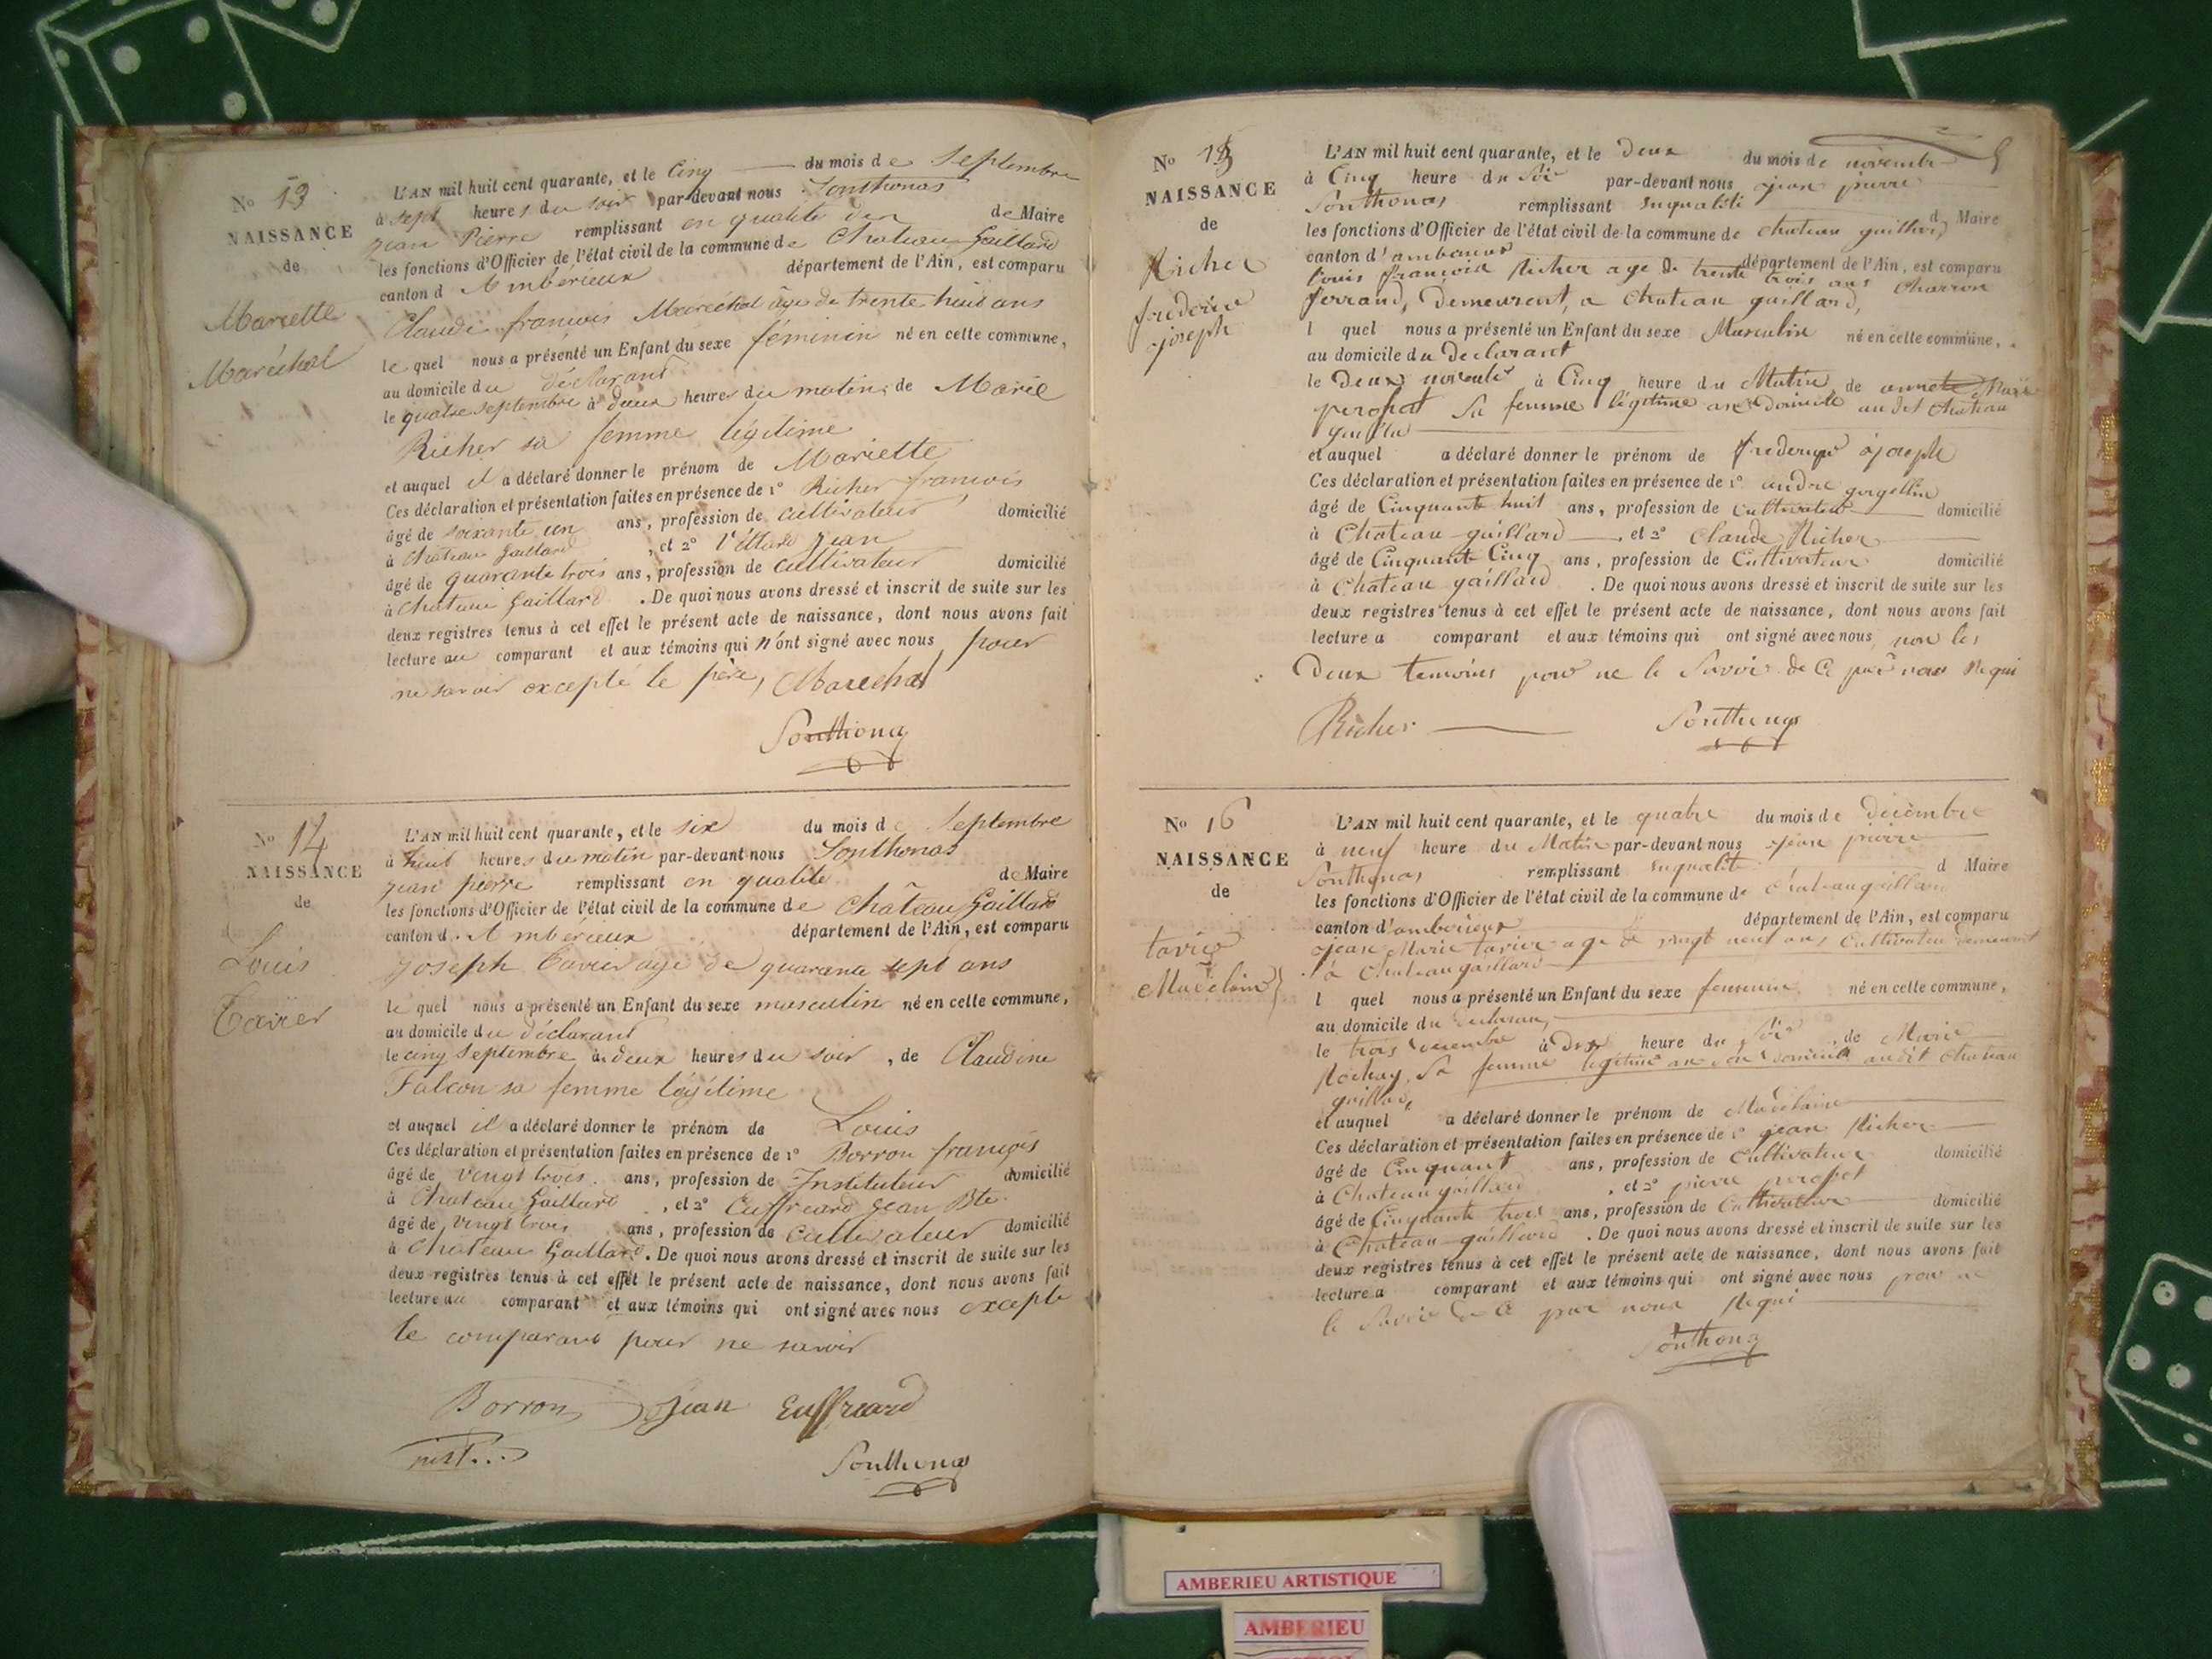 No 13
NAISSANCE
de
Mariette
Maréchal
L'AN mil huit cent quarante, et le Cinq du mois de Septembre
à sept heures du soir par-devant nous Sonthonas
jean Pierre remplissant en qualité de Maire
les fonctions d'Officier de l'état civil de la commune de Chateau Gaillard
canton d Ambérieux département de l'Ain, est comparu
Claude francois Maréchal âgé de trente huit ans
le quel nous a présenté un Enfant du sexe féminin né en cette commune,
au domicile du déclarant
le quatre septembre à deux heures du matin, de Marie
Richer sa femme légitime
et auquel il a déclaré donner le prénom de Mariette
Ces déclaration et présentation faites en présence de 1° Richer francois
âgé de soixante un ans, profession de cultivateur domicilié
à Chateau Gaillard, et 2° jean
âgé de quarante trois ans, profession de cultivateur domicilié
à Chateau Gaillard. De quoi nous avons dressé et inscrit de suite sur les
deux registres tenus à cet effet le présent acte de naissance, dont nous avons fait
lecture au comparant et aux témoins qui n'ont signé avec nous, pour
ne savoir excepté le père, Marechal
Sonthonas
No 14
NAISSANCE
de
Louis
Tavier
L'AN mil huit cent quarante, et le six du mois d Septembre
à huit heures du matin par-devant nous Sonthonas
jean pierre remplissant en qualité de Maire
les fonctions d'Officier de l'état civil de la commune de Château Gaillard
canton d. Ambérieux département de l'Ain, est comparu
joseph Tavier âgé de quarante sept ans
le quel nous a présenté un Enfant du sexe masculin né en cette commune,
au domicile du déclarant
le cinq Septembre à deux heures du soir, de Claudine
Falcon sa femme légitime
et auquel il a déclaré donner le prénom de Louis
Ces déclaration et présentation faites en présence de 1° Borron françois
âgé de vingt trois ans, profession de Instituteur domicilié
à Chateau Gaillard, et 2° Cuffreard jean Bte
âgé de vingt trois ans, profession de cultivateur domicilié
à Chateau Gaillard. De quoi nous avons dressé et inscrit de suite sur les
deux registres tenus à cet effet le présent acte de naissance, dont nous avons fait
lecture au comparant et aux témoins qui ont signé avec nous excepté
le comparant pour ne savoir
Borron jean Cuffreard
inst...
Sonthonas
No 15
NAISSANCE
de
Richer
frederic
joseph
L'AN mil huit cent quarante, et le Deux du mois de novembre
à Cinq heure du Soir par-devant nous jean pierre
Sonthonas remplissant enqualité d Maire
les fonctions d'Officier de l'état civil de la commune de Chateau gaillard
canton d'amberieux département de l'Ain, est comparu
louis francois Richer age de trente trois ans Charron
ferrand, Demeurent, a Chateau gaillard,
l quel nous a présenté un Enfant du sexe Masculin né en cette commune,
au domicile du Declarant
le Deux novembre à Cinq heure du Matin, de annete Marie
perobat Sa femme légitime domicile audit Chateau
gailla
et auquel a déclaré donner le prénom de joseph
Ces déclaration et présentation faites en présence de 1° andre
âgé de Cinquante huit ans, profession de Cultivateur domicilié
à Chateau-gaillard, et 2° Claude Richer
âgé de Cinquante Cinq ans, profession de Cultivateur domicilié
à Chateau gaillard. De quoi nous avons dressé et inscrit de suite sur les
deux registres tenus à cet effet le présent acte de naissance, dont nous avons fait
lecture a comparant et aux témoins qui ont signé avec nous, non les
Deux temoins pour ne le Savoir de Ce par nous Requi
Richer Sonthonas
No 16
NAISSANCE
de
tavier
Madelaine
L'AN mil huit cent quarante, et le quatre du mois de Décembre
à neuf heure du Matin par-devant nous jean pierre
Sonthonas remplissant enqualité d Maire
les fonctions d'Officier de l'état civil de la commune de Chateaugaillard
canton d'amberieux département de l'Ain, est comparu
jean Marie tavier age de vingt neuf ans Cultivateur Demeurant
à Chateaugaillard
l quel nous a présenté un Enfant du sexe né en cette commune,
au domicile du Declarant,
le trois Decembre à Dix heure du Soir, de Marie
Rochay, Sa femme légitime domicile audit Chateau
gaillard,
et auquel a déclaré donner le prénom de Madelaine
Ces déclaration et présentation faites en présence de 1° jean Richer
âgé de Cinquant ans, profession de Cultivateur domicilié
à Chateaugaillard, et 2° pierre perobet
âgé de Cinquante trois ans, profession de Cultivateur domicilié
à Chateau-gaillard. De quoi nous avons dressé et inscrit de suite sur les
deux registres tenus à cet effet le présent acte de naissance, dont nous avons fait
lecture a comparant et aux témoins qui ont signé avec nous pour ne
le Savoir de Ce par nous Requi
Sonthonas
AMBERIEU ARTISTIQUE
AMBERIEU